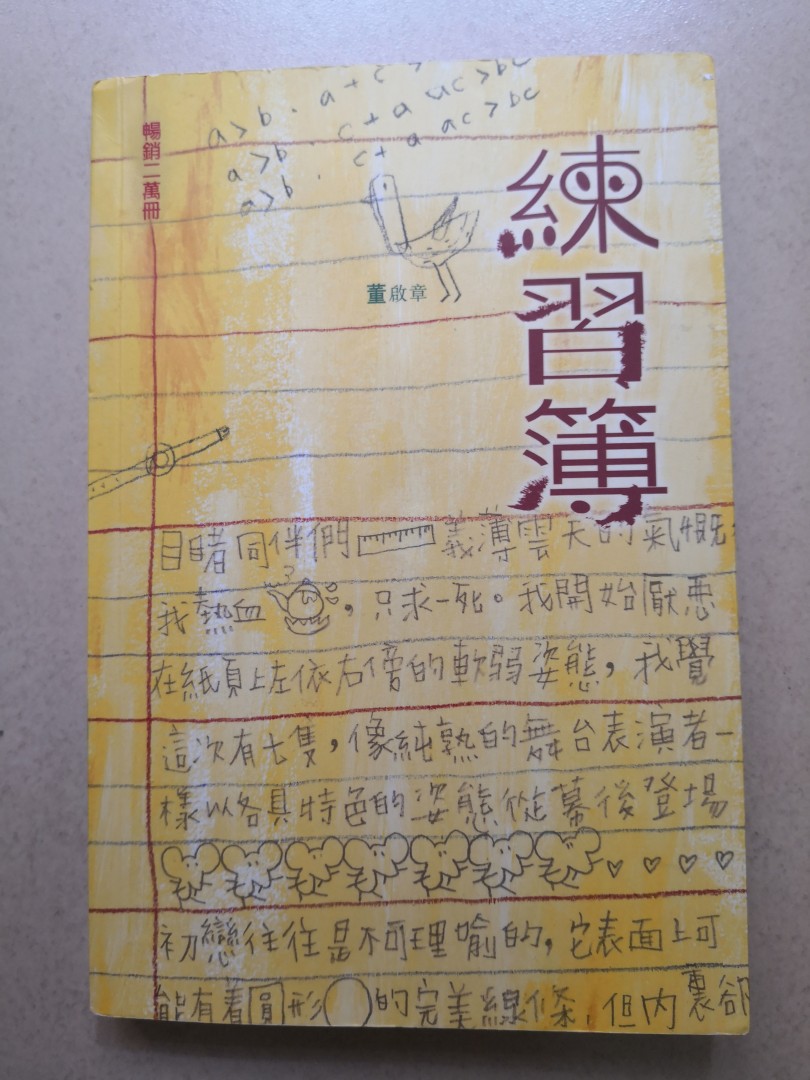 暢銷二萬冊
a>b . a+c >
a>b . c+a ac>bc
a>b . c+a ac>bc
練習簿
董啟章
目睹同伴們 義薄雲天的氣慨
我熱血 ，只求一死。我開始厭惡
在紙頁上左依右傍的軟弱姿態，我覺
這次有七隻，像純熟的舞台表演者一
樣以各具特色的姿態從幕後登場
初戀往往是不可理喻的，它表面上可
能有着圓形 的完美線條，但內裏卻